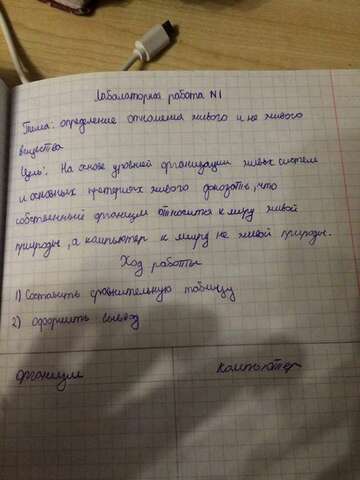 Лабалаторная работа N1
Тема: определение отношения живого и не живого
вещества
Цель: На основе уровней организации живых систем
и основных критериях живого доказать, что
собственный организм относится к миру живой
природы, а компьютер к миру не живой природы.
Ход работы
1) Составить сравнительную таблицу
2) оформить вывод
организм
компьютер